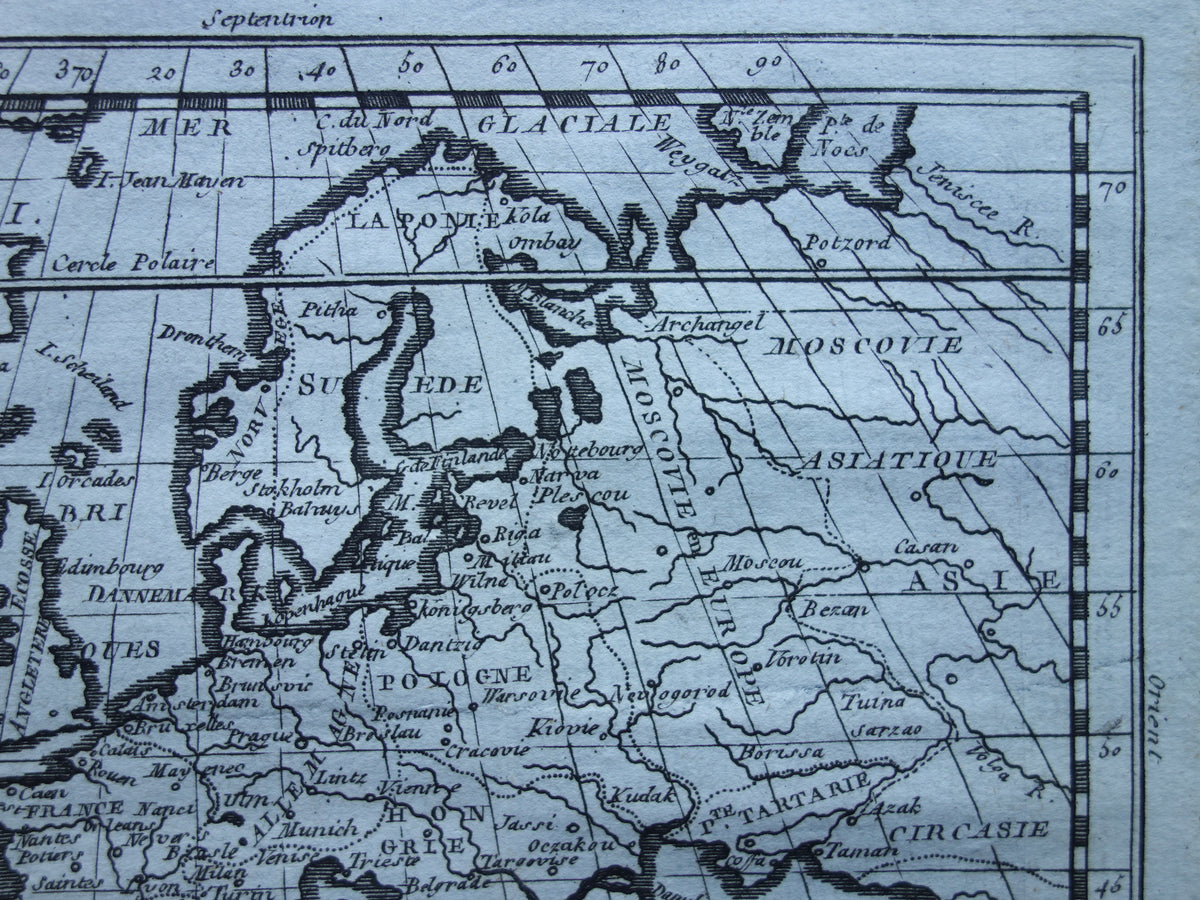 Septentrion
370
20
30
40
50
60
70
80
90
MER GLACIALE
C. du Nord
Spitberg
Nle Zem
ble
Pte de
Nocs
Weygat
I. Jean Mayen
Jeniscee R.
70
I.
LAPONIE
Kola
ombay
Potzord
Cercle Polaire
Pitha
M. Blanche
Archangel
65
Dronthem
MOSCOVIE
I. Scheiland
SUEDE
NORVEGE
MOSCOVIE en EUROPE
ASIATIQUE
60
Berge
G. de Finlande
Nottebourg
I. orcades
Stokholm
Narva
Bahuys
M.
Revel
Plescou
BRI
Bal
Riga
tique
Mittau
Moscou
Casan
ASIE
ECOSSE
Edimbourg
Wilna
Polocz
DANNEMARK
Kopenhague
Königsberg
Bezan
55
ANGLETERRE
QUES
Hambourg
Stetin
Dantzig
Bremen
Vorotin
Orient
POLOGNE
Brunsvic
Warsovie
Nevogorod
Tuina
Amsterdam
Posnanie
Sarzao
Bruxelles
Prague
Breslau
Kiovie
Borissa
50
Calais
Cracovie
Volga R.
Rouen
Mayenec
Lintz
Vienne
Kudak
Pte TARTARIE
Caen
FRANCE
Nanci
Ulm
ALLEMAGNE
HONGRIE
Azak
Nantes
Orleans
Munich
Jassi
CIRCASIE
Potiers
Basle
Venise
Trieste
Oczakou
Coffa
Taman
Saintes
Milan
Targovise
Lyon
Turin
Belgrade
45